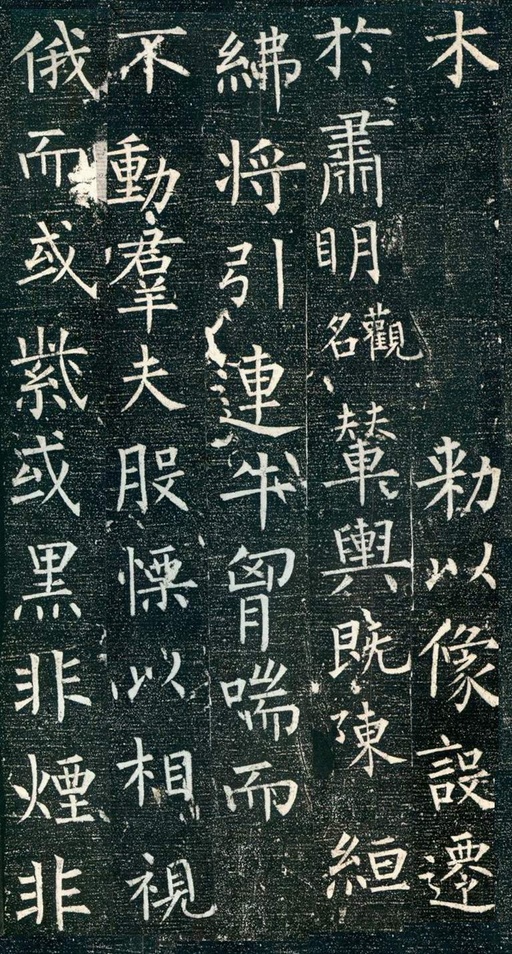 木　勑以像設遷
於肅眀觀名輦輿既陳絙
紼将引連牛胷喘而
不動羣夫股慄以相視
俄而或紫或黒非煙非